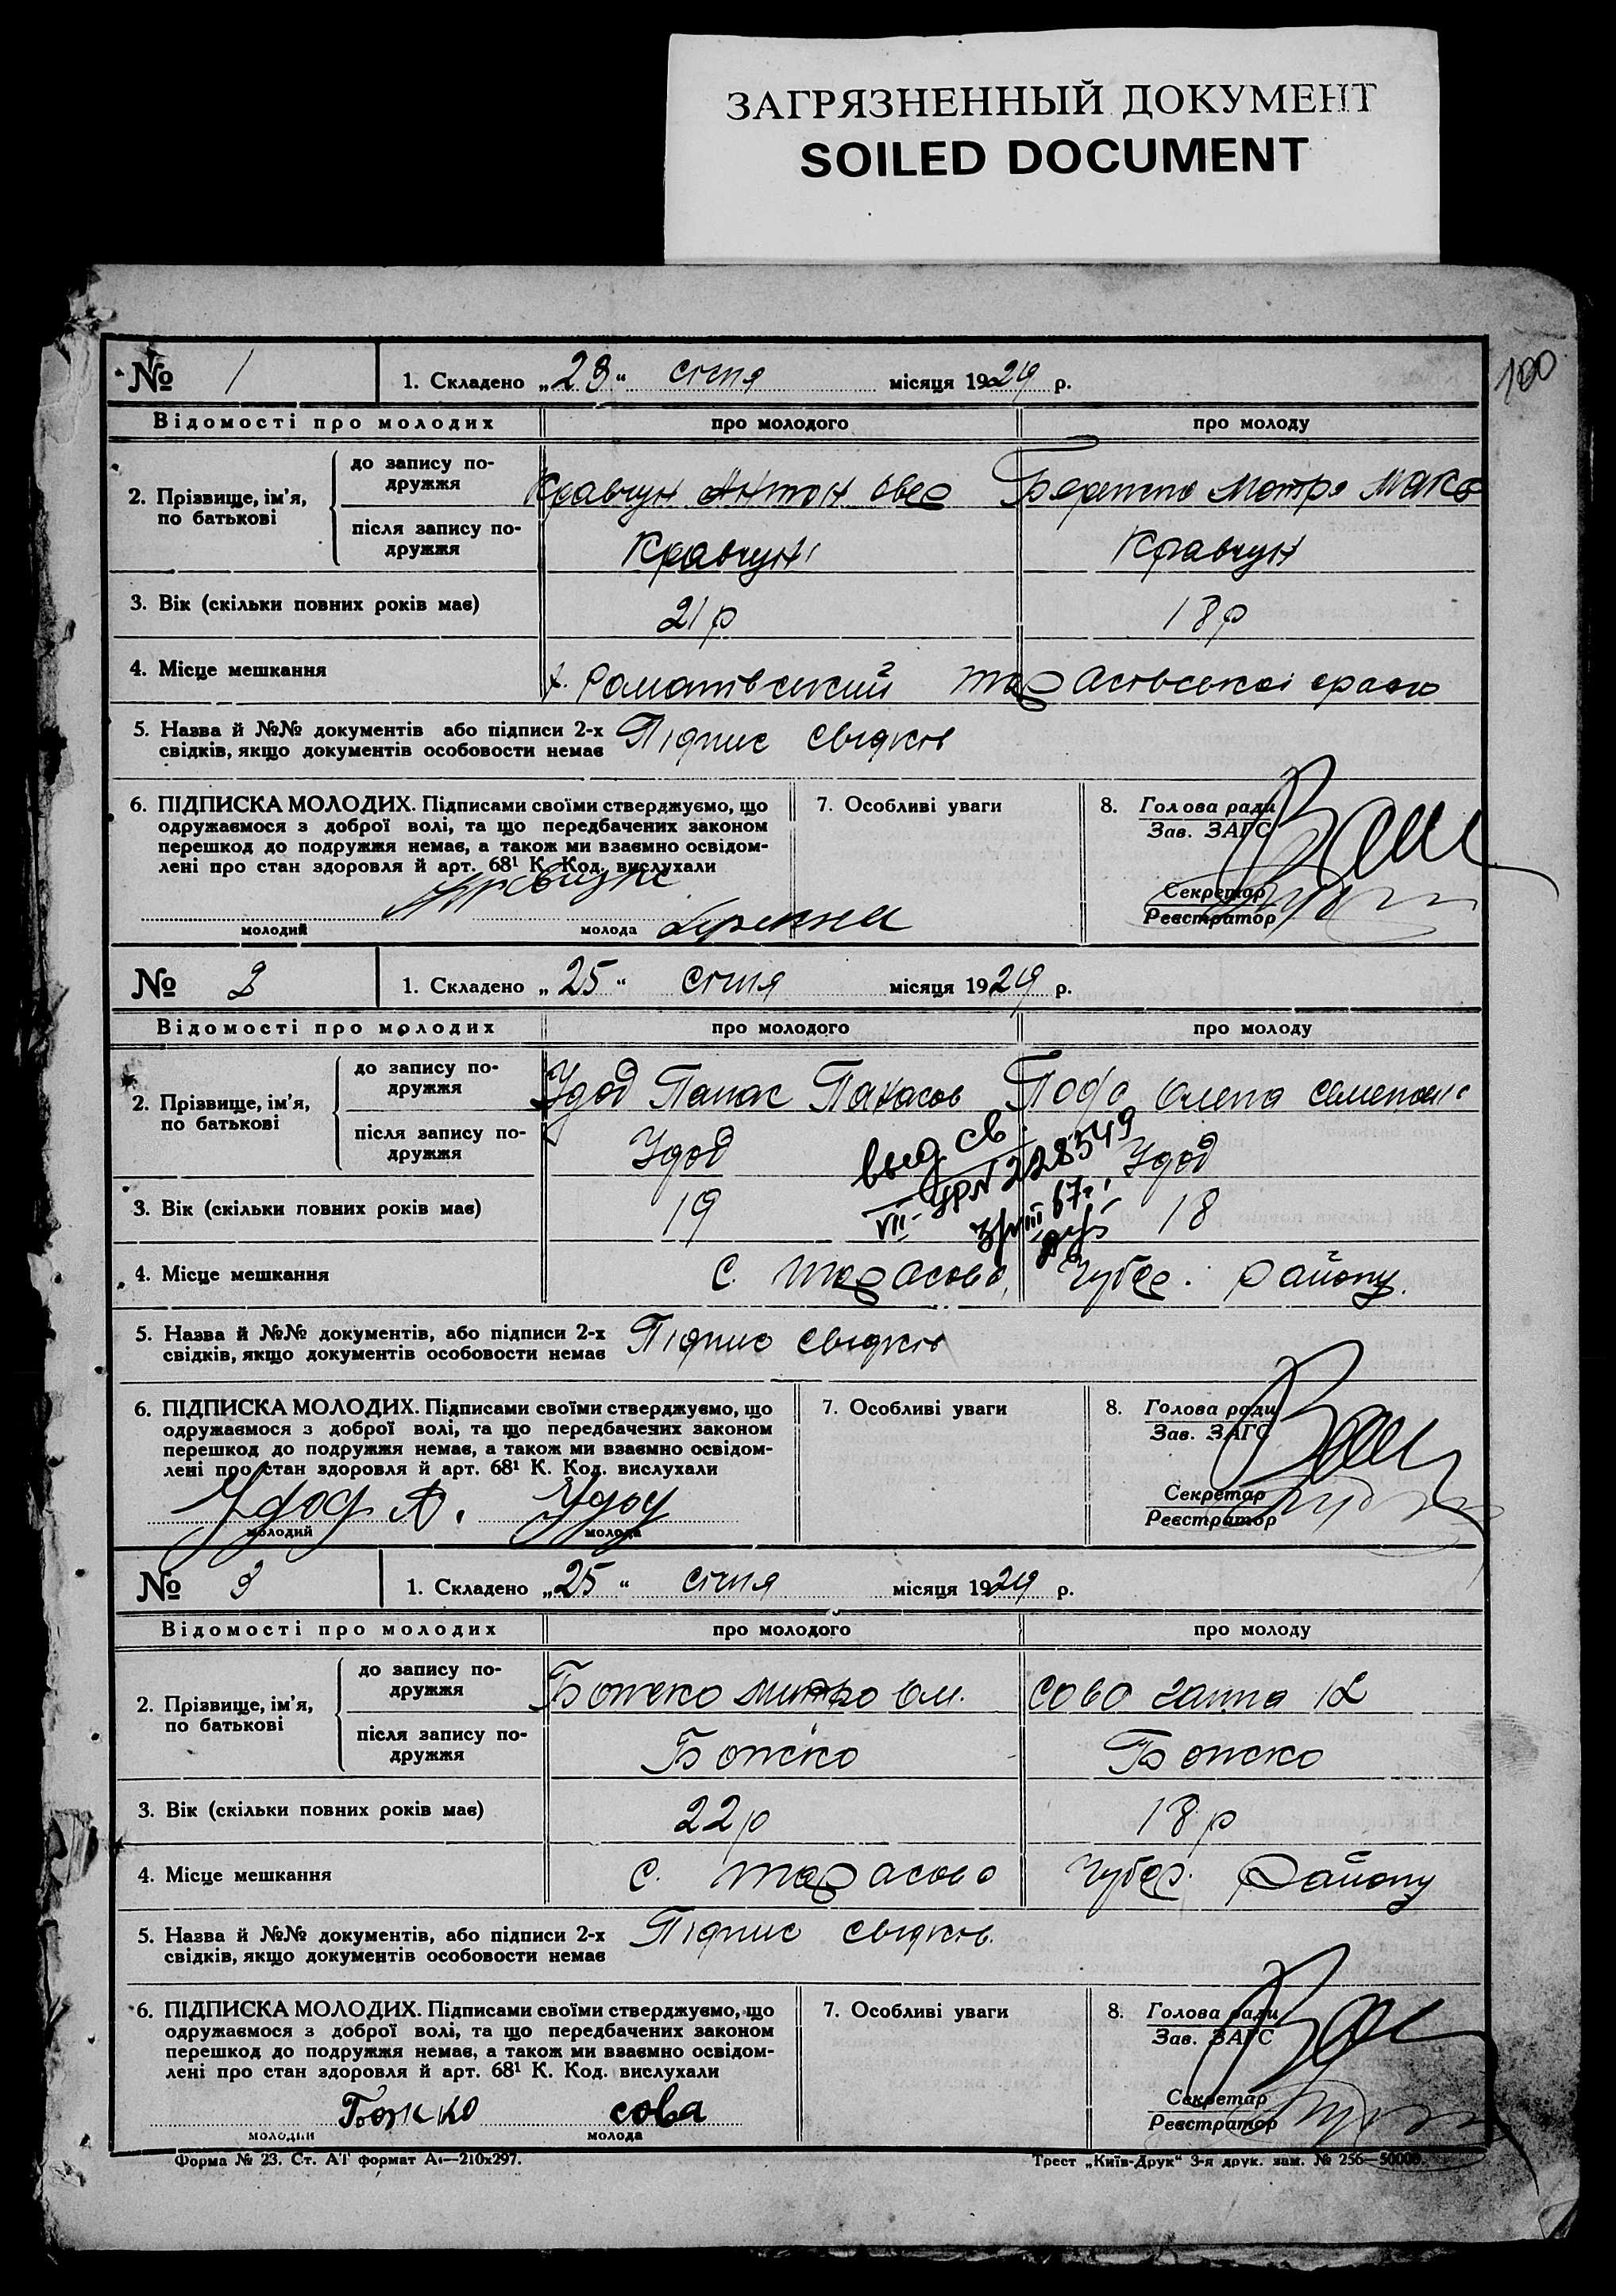 ЗАГРЯЗНЕННЫЙ ДОКУМЕНТ
SOILED DOCUMENT
100
№ 1 1. Складено „23“ січня місяця 1929 р.
Відомості про молодих про молодого про молоду
2. Прізвище, ім’я, по батькові
до запису подружжя Кравчун Антон Овер Мотря Мако
після запису подружжя Кравчун Кравчун
3. Вік (скільки повних років має) 21 р 18 р
4. Місце мешкання х. Романівський Тарасівської
5. Назва й №№ документів або підписи 2-х Підпис свідків
свідків, якщо документів особовости немає
6. ПІДПИСКА МОЛОДИХ. Підписами своїми стверджуємо, що 7. Особливі уваги 8. Голова ради
одружаємося з доброї волі, та що передбачених законом Зав. ЗАГС
перешкод до подружжя немає, а також ми взаємно освідом-
лені про стан здоров’я й арт. 68¹ К. Код. вислухали
Секретар
Реєстратор
молодий молода
№ 2 1. Складено „25“ січня місяця 1929 р.
Відомості про молодих про молодого про молоду
2. Прізвище, ім’я, по батькові
до запису подружжя Удод Панас Панасов Олена Семенов
після запису подружжя Удод Удод
выд св.
VII-УР № 228549
67 г.
3. Вік (скільки повних років має) 19 18
4. Місце мешкання с. Тарасовка, Чубар. району.
5. Назва й №№ документів, або підписи 2-х Підпис свідків
свідків, якщо документів особовости немає
6. ПІДПИСКА МОЛОДИХ. Підписами своїми стверджуємо, що 7. Особливі уваги 8. Голова ради
одружаємося з доброї волі, та що передбачених законом Зав. ЗАГС
перешкод до подружжя немає, а також ми взаємно освідом-
лені про стан здоров’я й арт. 68¹ К. Код. вислухали
Секретар
Удод А. Удод Реєстратор
молодий молода
№ 3 1. Складено „25“ січня місяця 1929 р.
Відомості про молодих про молодого про молоду
2. Прізвище, ім’я, по батькові
до запису подружжя Божко Митро Ом. Сова Ганна
після запису подружжя Божко Божко
3. Вік (скільки повних років має) 22 р 18 р
4. Місце мешкання с. Тарасовка Чубар. району
5. Назва й №№ документів, або підписи 2-х Підпис свідків.
свідків, якщо документів особовости немає
6. ПІДПИСКА МОЛОДИХ. Підписами своїми стверджуємо, що 7. Особливі уваги 8. Голова ради
одружаємося з доброї волі, та що передбачених законом Зав. ЗАГС
перешкод до подружжя немає, а також ми взаємно освідом-
лені про стан здоров’я й арт. 68¹ К. Код. вислухали
Секретар
Божко сова Реєстратор
молодий молода
Форма № 23. Ст. АТ формат А₄—210х297. Трест „Київ-Друк“ 3-я друк. зам. № 256—50000.